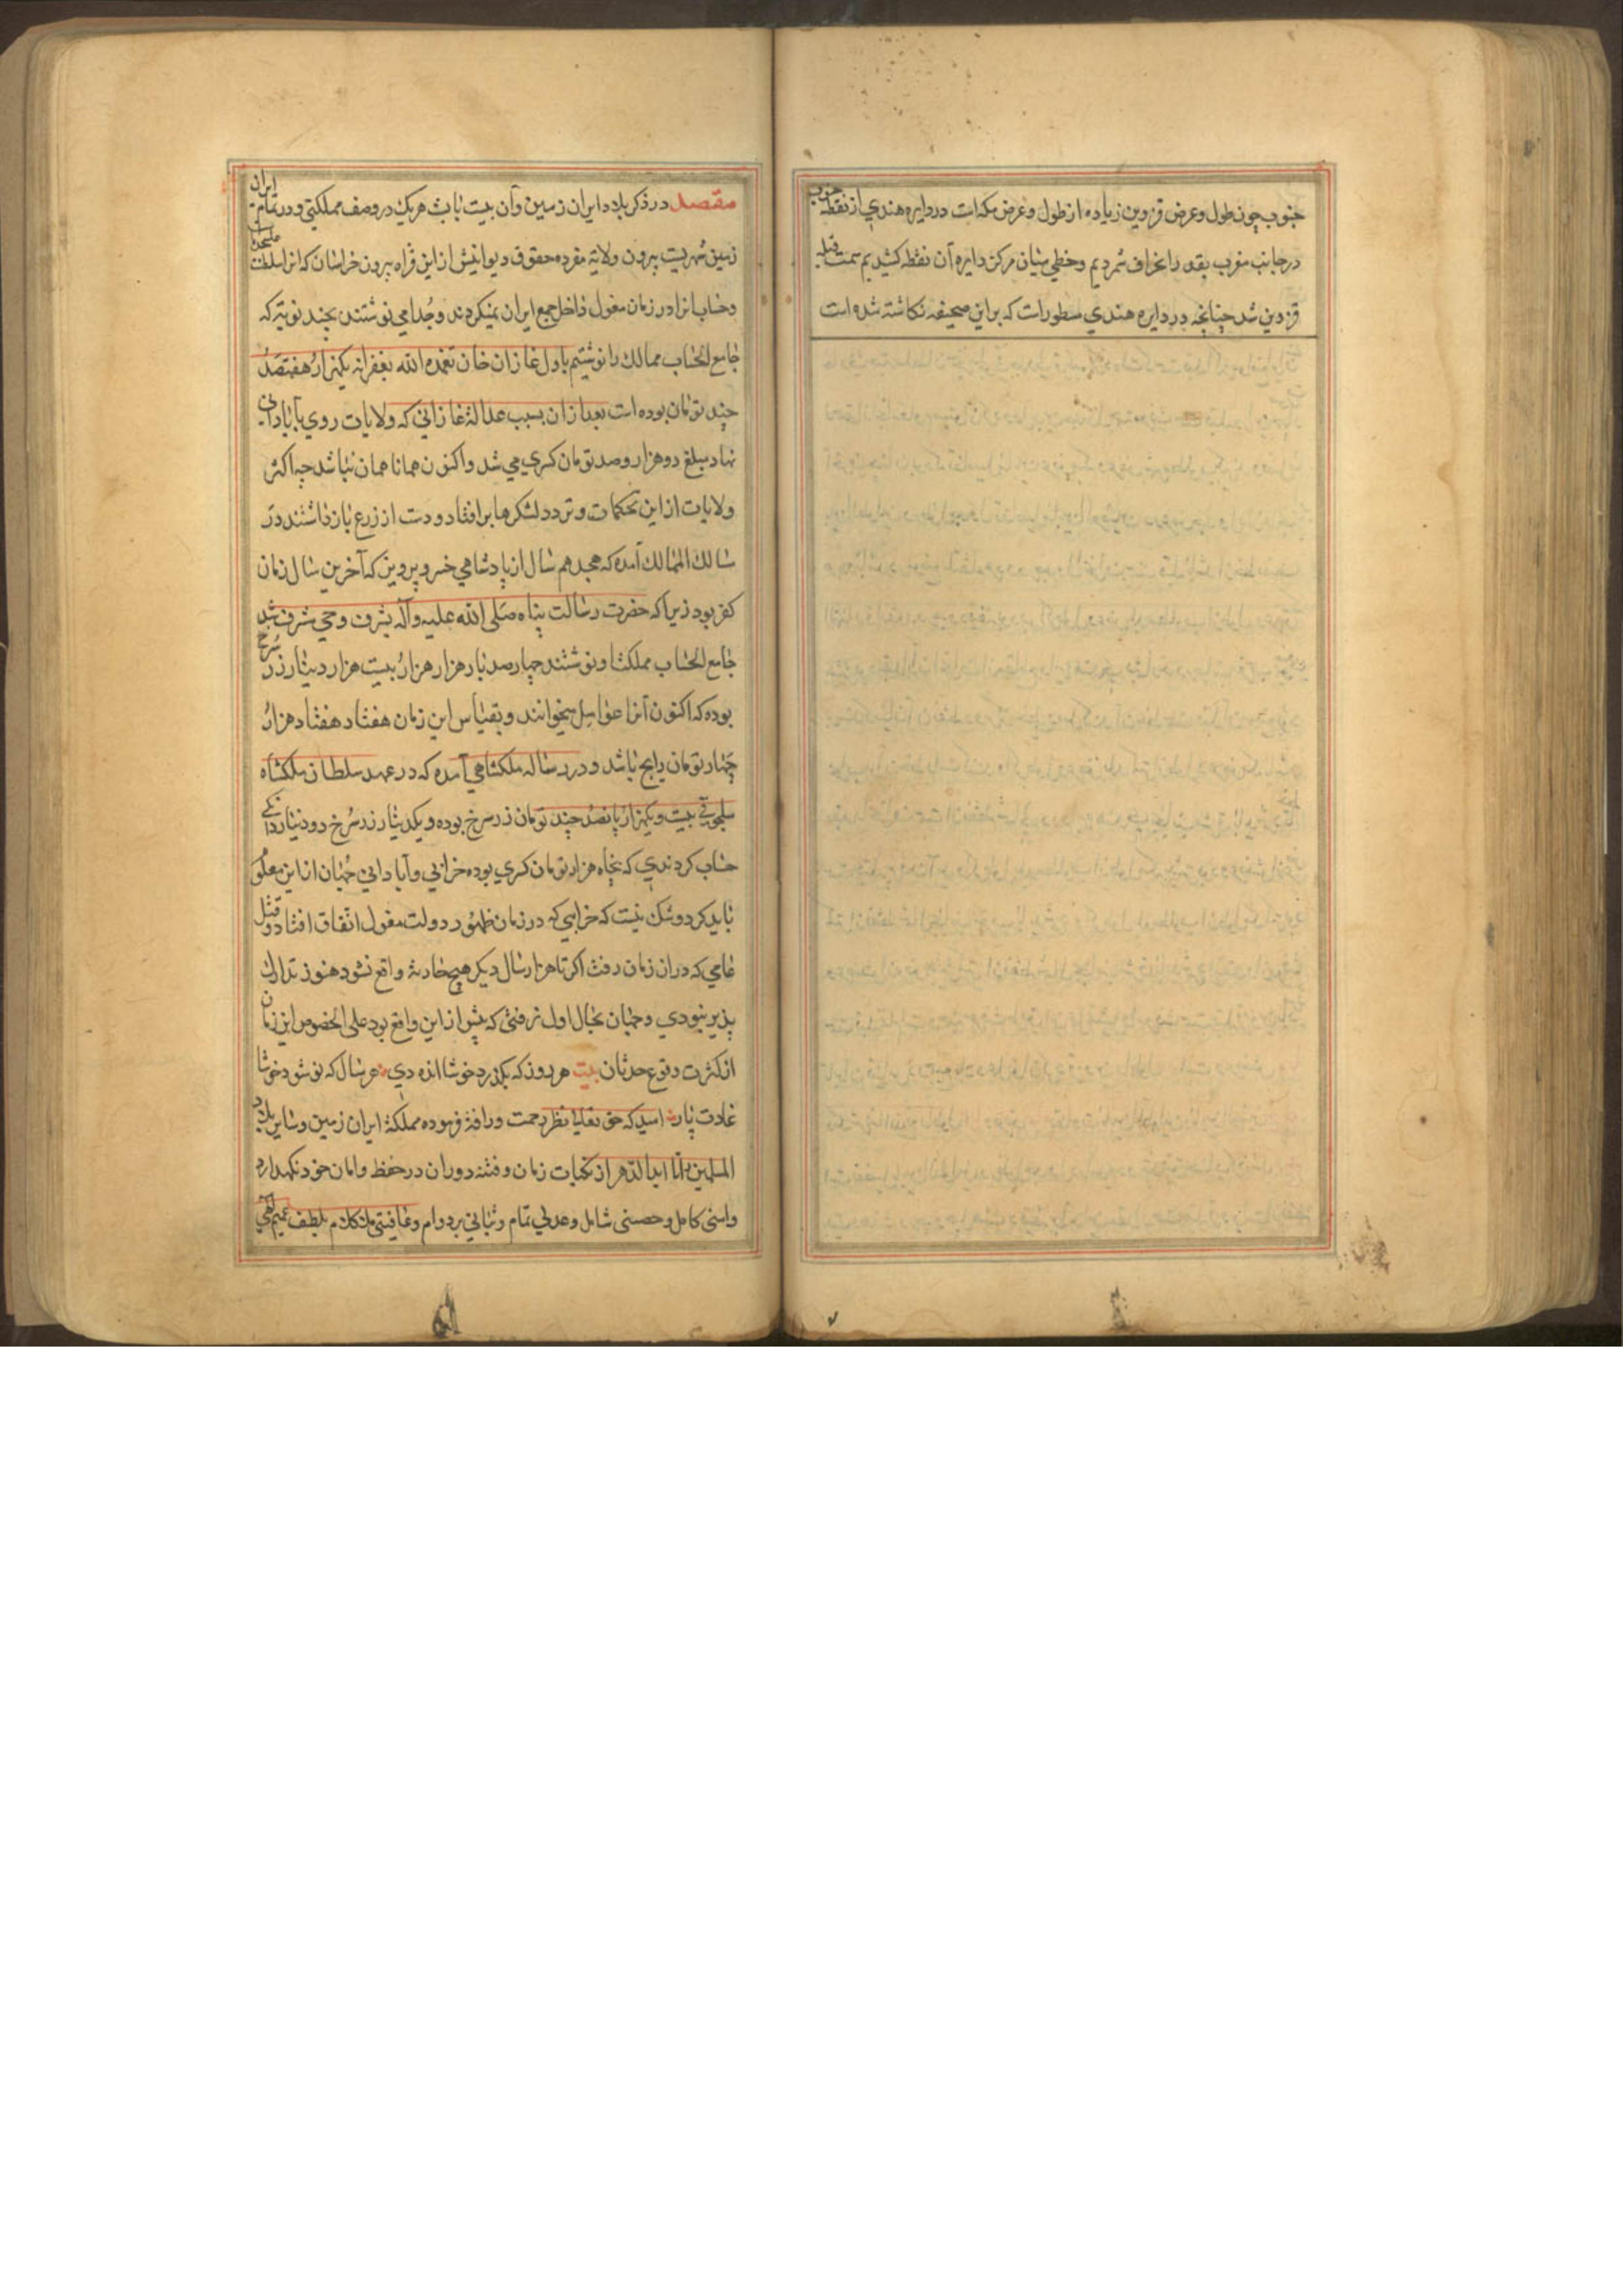 جنوب چون طول و عرض قزوین زیاده از طول و عرض مکه است در دایره هندی از نقطه جنوب
در جانب مغرب بقدر انحراف شمردیم و خطی میان مرکز دایره آن نقطه کشیدیم سمت قبله
قزوین شد چنانچه در دایره هندی مسطور است که براین صحیفه نگاشته شده است
مقصد در ذکر بلاد ایران زمین و آن بیست باب است هریک در وصف مملکتی و در تمام ایران
زمین شهریست بیرون ولایة مفرده حقوق دیوانیش از این قراه بیرون خراسان که انرا سلطنت
و حساب انرا در زمان مغول داخل جمع ایران نمیکردند و جدا می نوشتند بچند نوبته که
جامع الحساب ممالک را نوشتیم باول غازان خان تغمده الله بغفرانه یکهزار هفتصد
چند تومان بوده است بعد ازان بسبب عدالة غازانی که ولایات روی بآبادانی
نهاد مبلغ دو هزار و صد تومان کسری می شد و اکنون همانا همان نباشد چه اکثر
ولایات از این تحکمات و تردد لشکرها برافتاد و دست از زرع بازداشتند در
مسالک الممالک آمده که هجدهم سال از پادشاهی خسرو پرویز که آخرین سال زمان
کفر بود زیرا که حضرت رسالت پناه صلی الله علیه وآله بشرف وحی مشرف شد
جامع الحساب مملکتش نوشتند چهار صد بار هزار هزار بیست هزار دینار زر سرخ
بوده که اکنون آنرا عوامل میخوانند و بقیاس این زمان هفتاد هفتاد هزار
چهار تومان رایج باشد و در رساله ملکشاهی آمده که در عهد سلطان ملکشاه
سلجوقی بیست و یکهزار پانصد چند تومان زر سرخ بوده و یکدینار زر سرخ دو دینار دانکی
حساب کردندی که پنجاه هزار تومان کسری بوده خرابی و آبادانی جهان از این معلوم
باید کرد و شک نیست که خرابی که در زمان ظهور دولت مغول اتفاق افتاد و قتل
عامی که دران زمان رفت اکر تا هزار سال دیکر هیچ حادثه واقع نشود هنوز تدارک
پذیر نبودی و جهان بحال اول نرفتی که پیش از این واقع بود علی الخصوص این زمان
از کثرت وقوع حدثان بیت هر روز که بکذرد خوشا انده دی هر سال که نو شود خوشا
غادت پار امید که حق تعالی بنظر رحمت و رافة فرموده مملکة ایران زمین و سایر بلاد
المسلمین را تا ابد الدهر از نکبات زمان و فتنه دوران در حفظ و امان خود نکهدارد
و امنی کامل و حصنی شامل و عدلی تمام و ثباتی بر دوام و عافیتی بلطف عمیم الهی